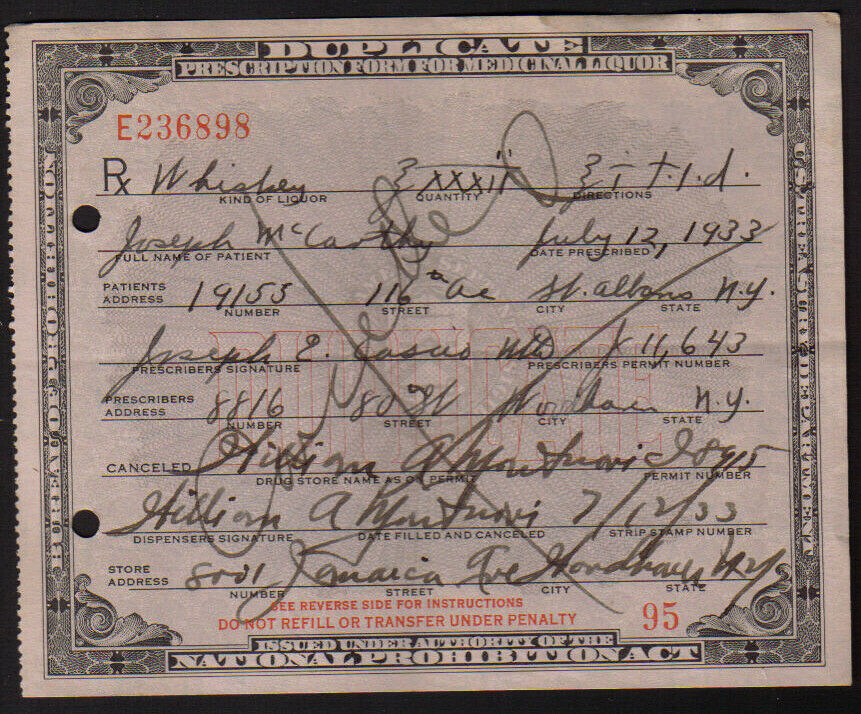 DUPLICATE
PRESCRIPTION FORM FOR MEDICINAL LIQUOR
E236898
Rx Whiskey ℥ xxxii ℥ i t.i.d.
KIND OF LIQUOR QUANTITY DIRECTIONS
Joseph McCarthy July 12, 1933
FULL NAME OF PATIENT DATE PRESCRIBED
PATIENTS ADDRESS 19155 116 St. Albans N.Y.
NUMBER STREET CITY STATE
Joseph E. MD 11,643
PRESCRIBERS SIGNATURE PRESCRIBERS PERMIT NUMBER
PRESCRIBERS ADDRESS 8816 80 St N.Y.
NUMBER STREET CITY STATE
CANCELED William A
DRUG STORE NAME AS ON PERMIT PERMIT NUMBER
William A 7/12/33
DISPENSERS SIGNATURE DATE FILLED AND CANCELED STRIP STAMP NUMBER
STORE ADDRESS 8001 Jamaica Ave Woodhaven N.Y.
NUMBER STREET CITY STATE
SEE REVERSE SIDE FOR INSTRUCTIONS
DO NOT REFILL OR TRANSFER UNDER PENALTY 95
ISSUED UNDER AUTHORITY OF THE
NATIONAL PROHIBITION ACT